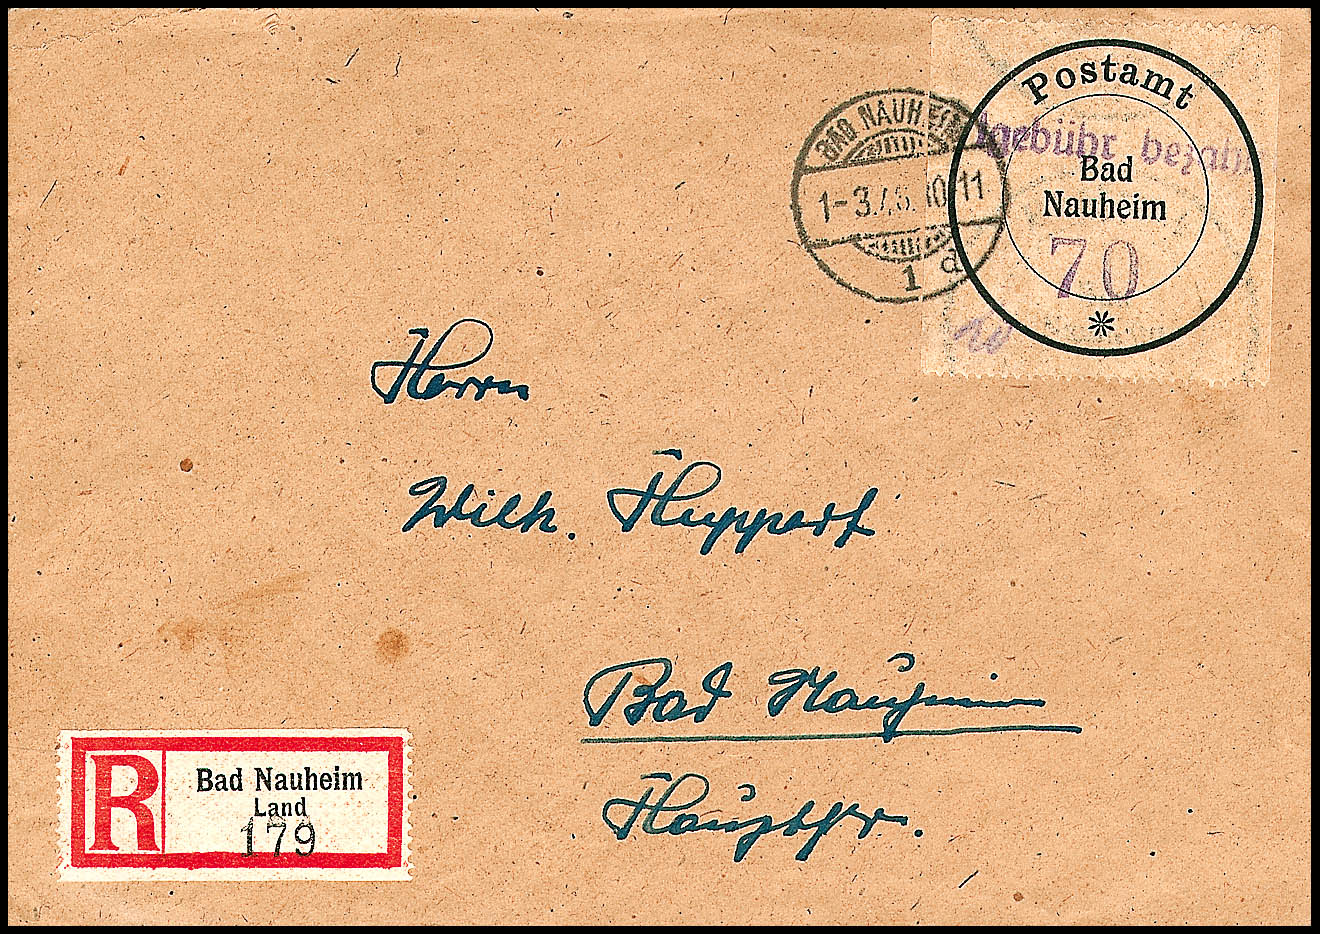 Postamt
Bad
Nauheim
gebühr bezahlt
70
BAD NAUHEIM
1-3.45.10-11
1 d
Herrn
Wilh. Huppert
Bad Nauheim
Hauptstr.
R
Bad Nauheim
Land
179